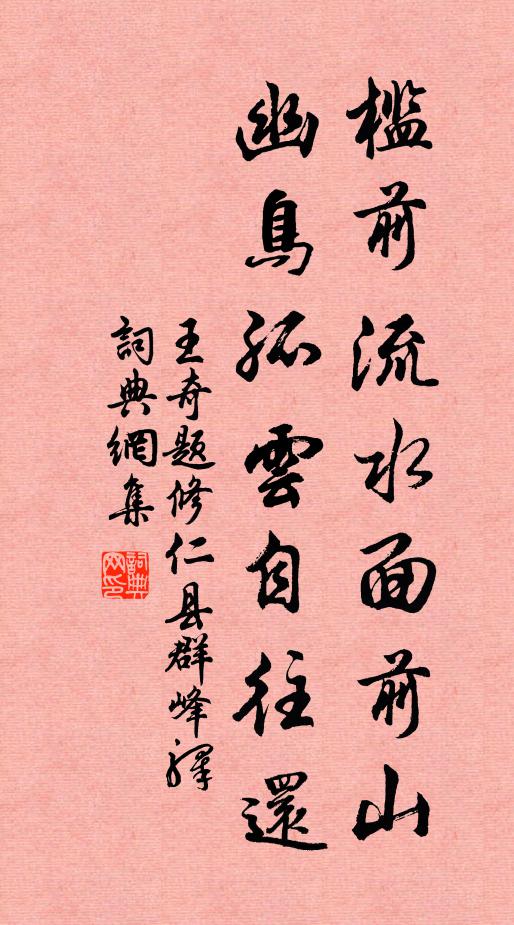 檻前流水面前山
幽鳥孤雲自往還
王奇题修仁县群峰驛
詞典網集
詞典網印